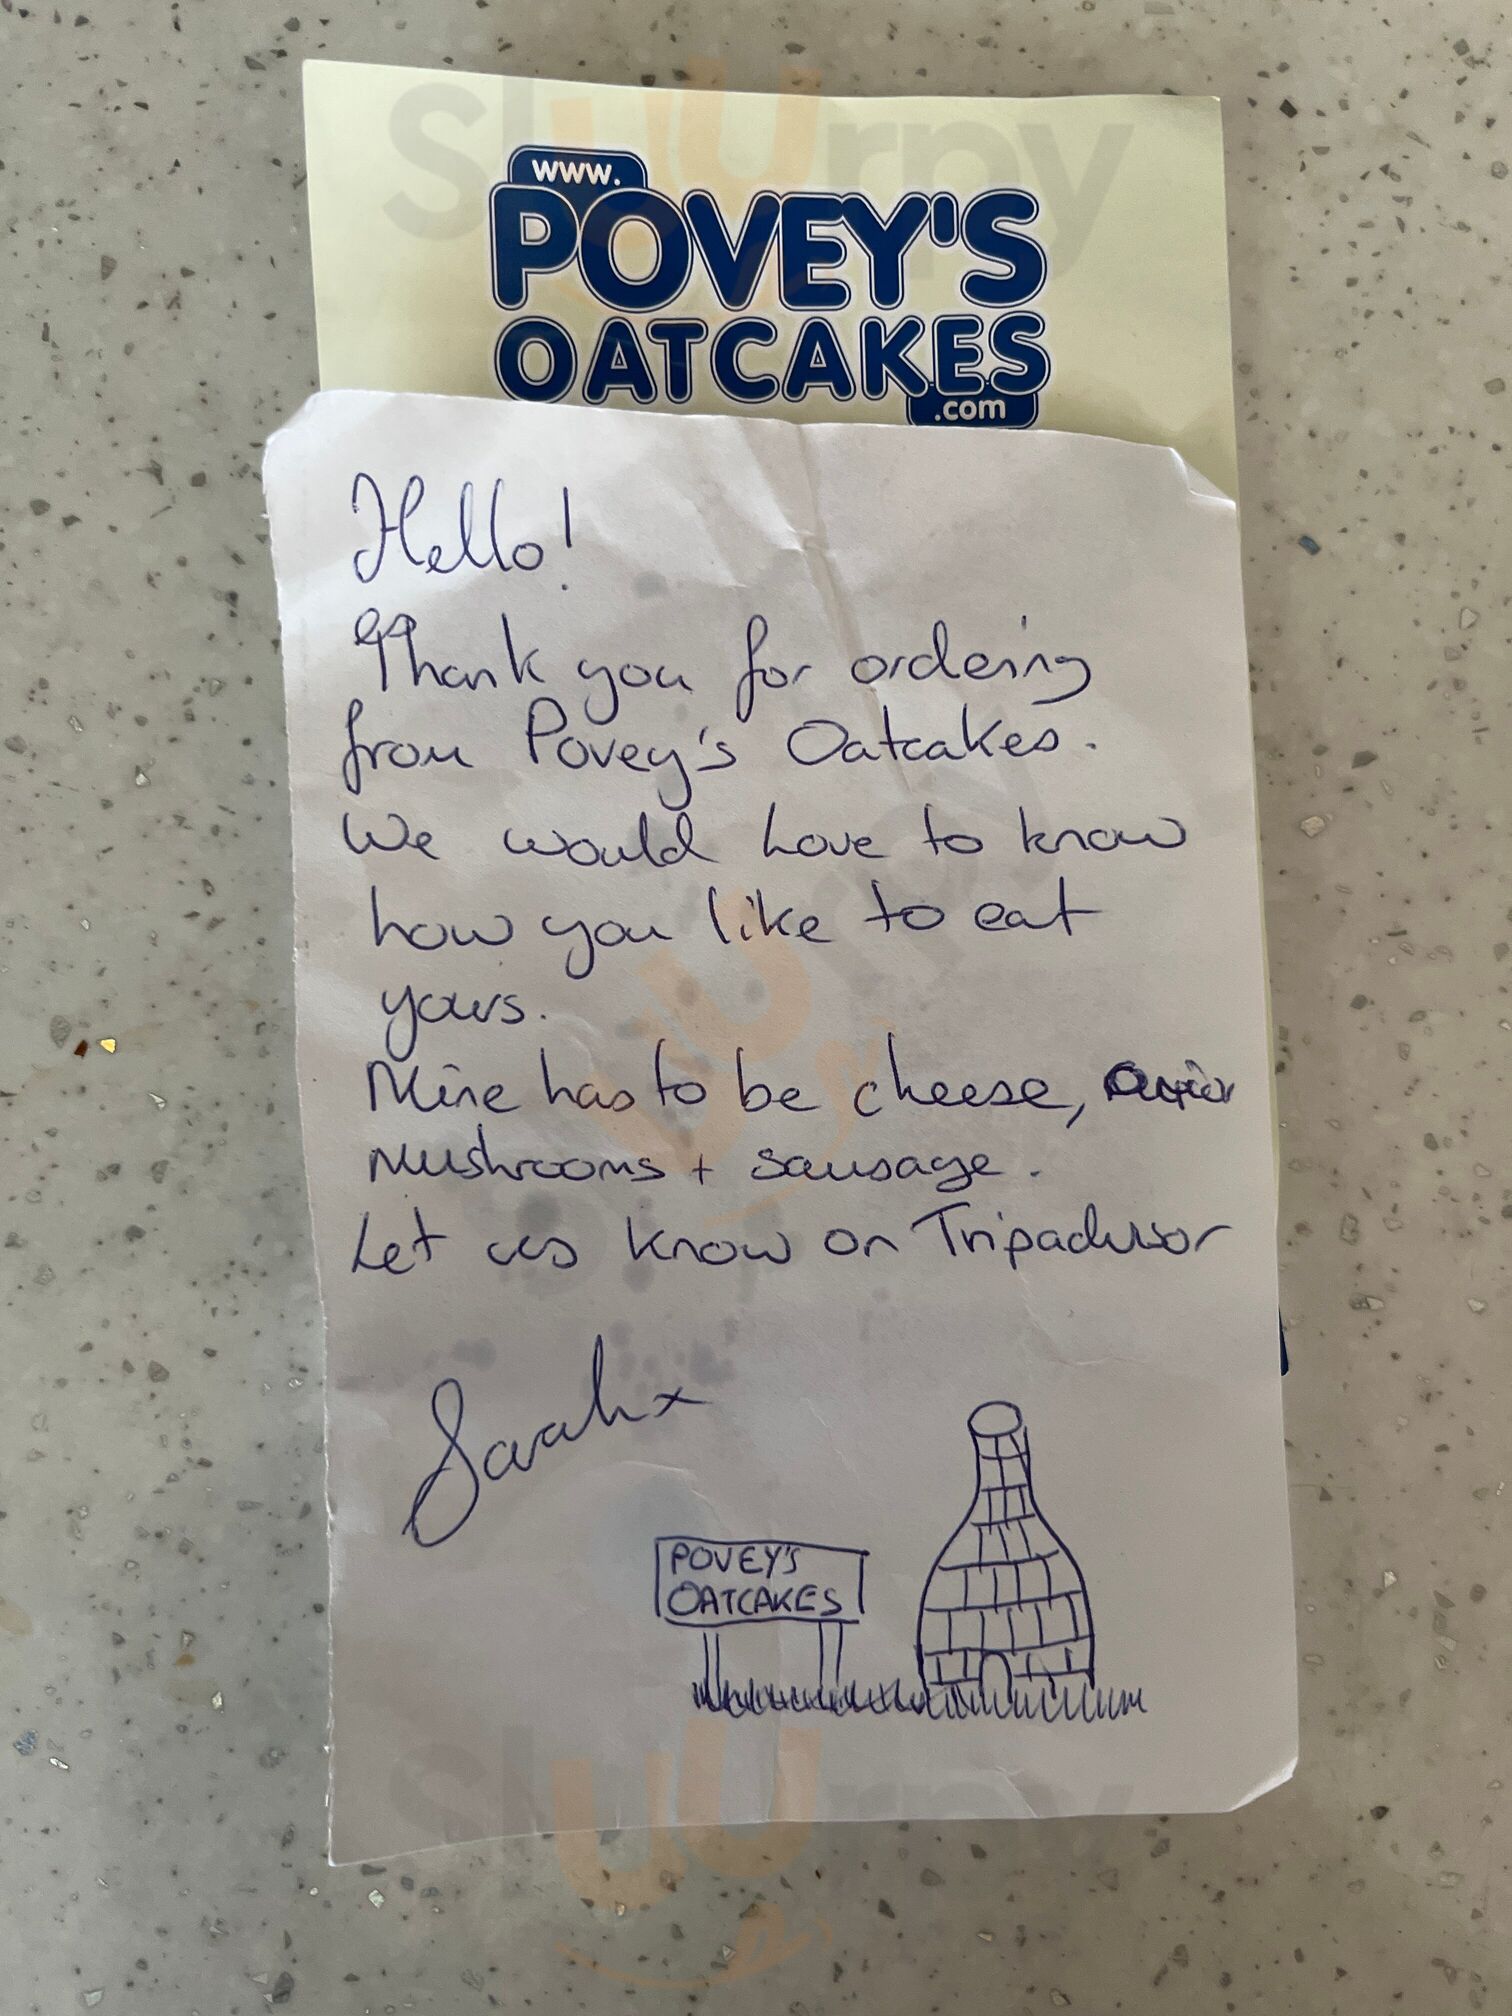 www.
POVEY'S
OATCAKES
.com
Hello!
Thank you for ordering
from Povey's Oatcakes.
We would love to know
how you like to eat
yours.
Mine has to be cheese,
Mushrooms + sausage.
Let us know on Tripadvisor
Sarah x
POVEY'S
OATCAKES
Sluurpy
Sluurpy
Sluurpy